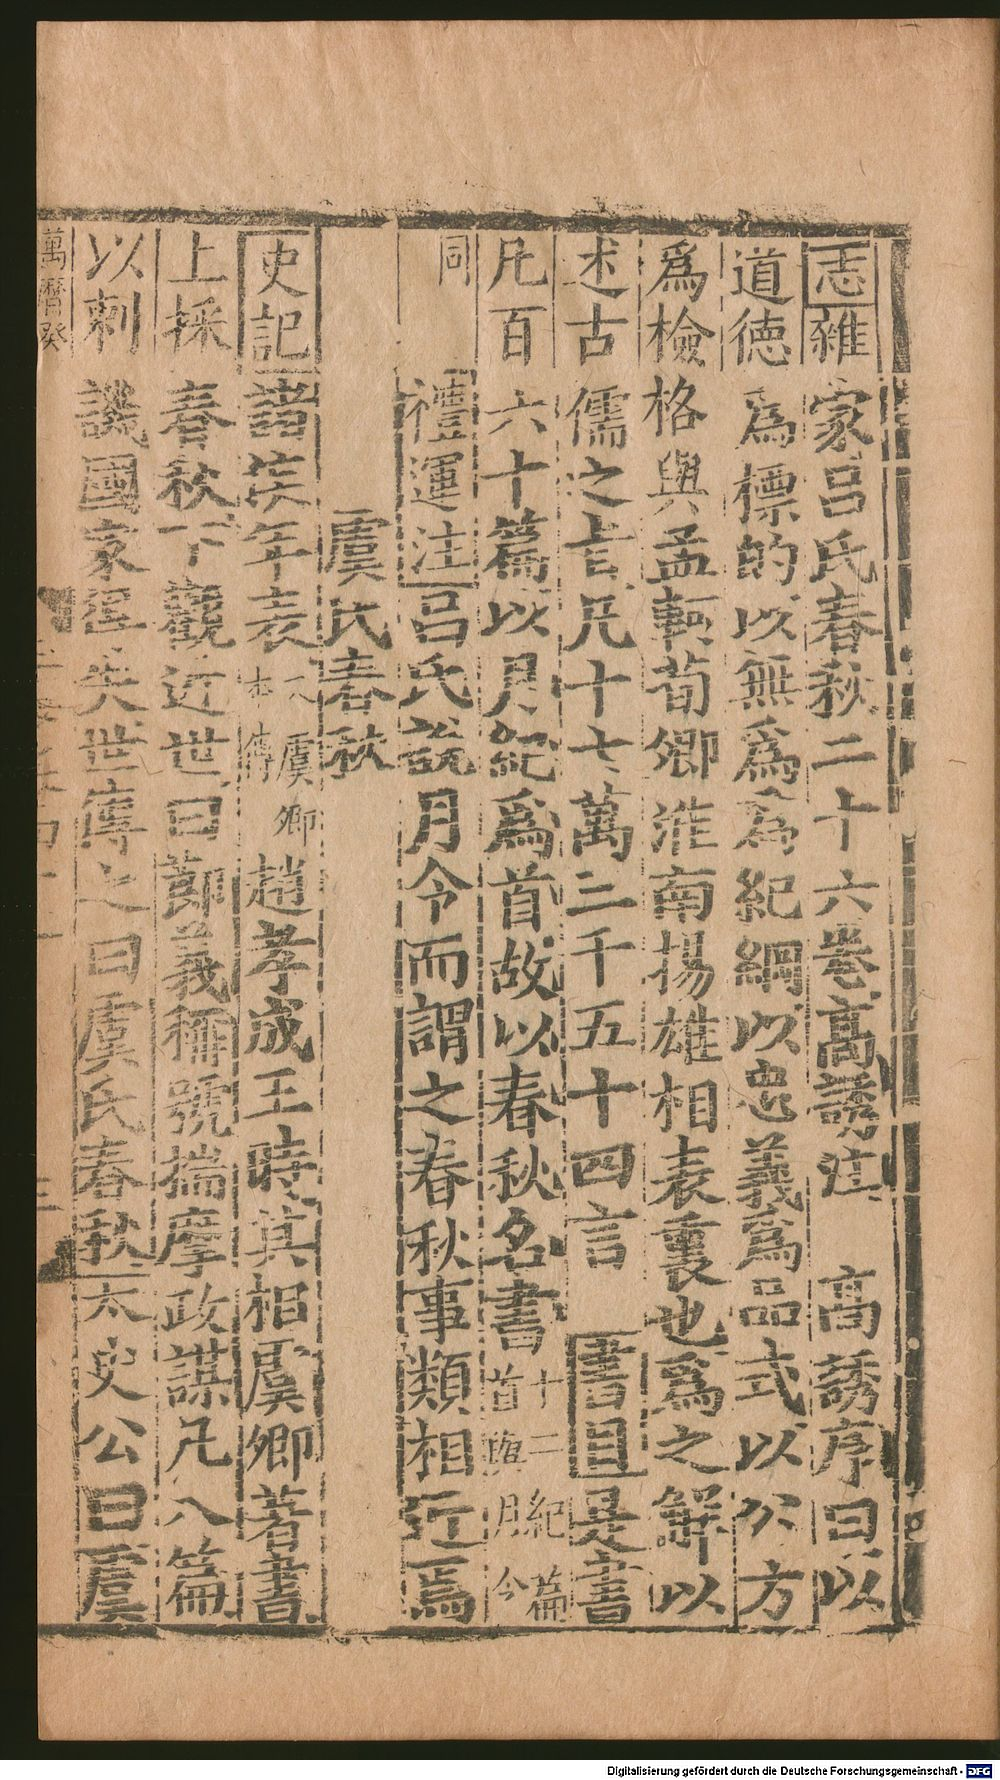 志雜家呂氏春秋二十六卷高誘注　高誘序曰以
道德爲標的以無爲爲紀綱以忠義爲品式以公方
爲檢格與孟軻荀卿淮南揚雄相表裏也爲之解以
述古儒之言凡十七萬三千五十四言　書目是書
凡百六十篇以月紀爲首故以春秋名書十二紀篇首與月令
同　禮運注呂氏說月令而謂之春秋事類相近焉
虞氏春秋
史記諸侯年表又虞卿本傳趙孝成王時其相虞卿著書
上採春秋下觀近世曰節義稱號揣摩政謀凡八篇
以刺譏國家得失世傳之曰虞氏春秋太史公曰虞
萬曆癸
Digitalisierung gefördert durch die Deutsche Forschungsgemeinschaft - DFG